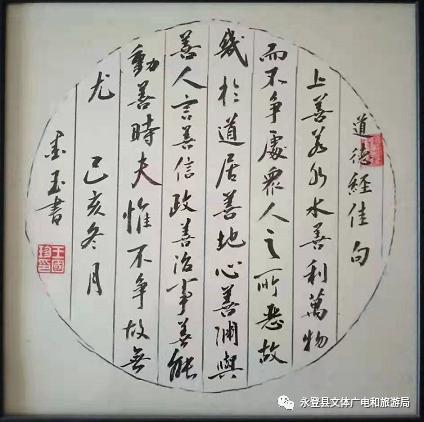 道德經佳句
上善若水水善利萬物
而不爭處衆人之所惡故
幾於道居善地心善淵與
善人言善信政善治事善能
動善時夫惟不爭故無
尤 己亥冬月
玉書
王國
珍印
永登县文体广电和旅游局